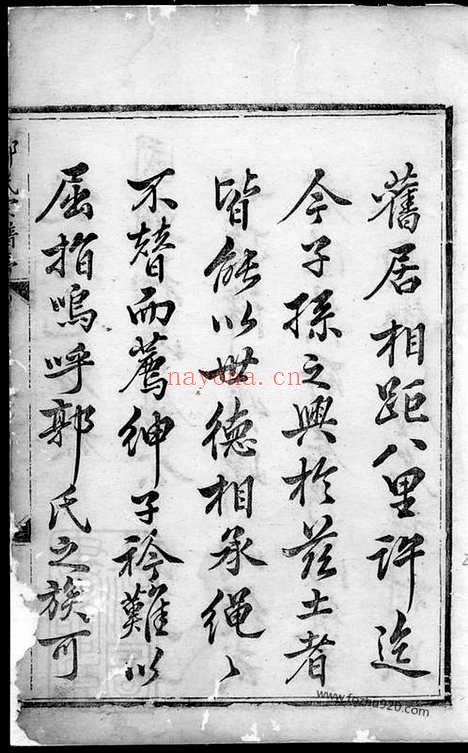 舊居相距八里許迄
今子孫之興於茲土者
皆能以世德相承繩〻
不替而薦紳子衿難以
屈指嗚呼郭氏之族可
nayona.cn
www.fgzhu920.com